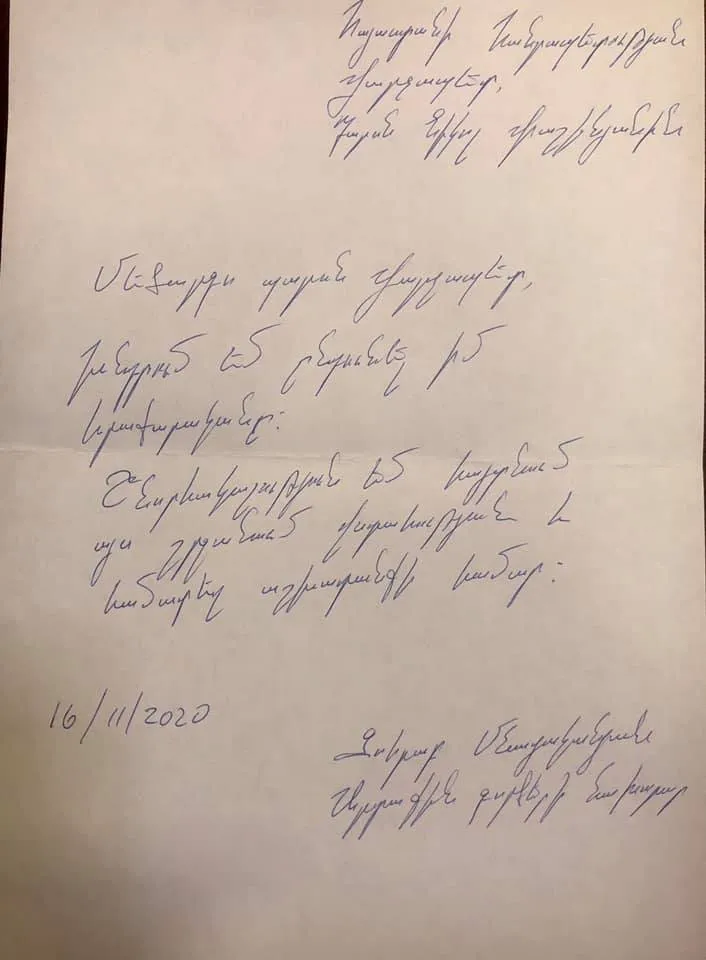 Հայաստանի Հանրապետության
Վարչապետ,
Պարոն Նիկոլ Փաշինյանին
Մեծարգո պարոն Վարչապետ,
Խնդրում եմ ընդունել իմ
հրաժարականը:
Շնորհակալություն եմ հայտնում
այս շրջանում վստահության և
համատեղ աշխատանքի համար:
16/11/2020
Զոհրաբ Մնացականյան
Արտաքին գործերի նախարար